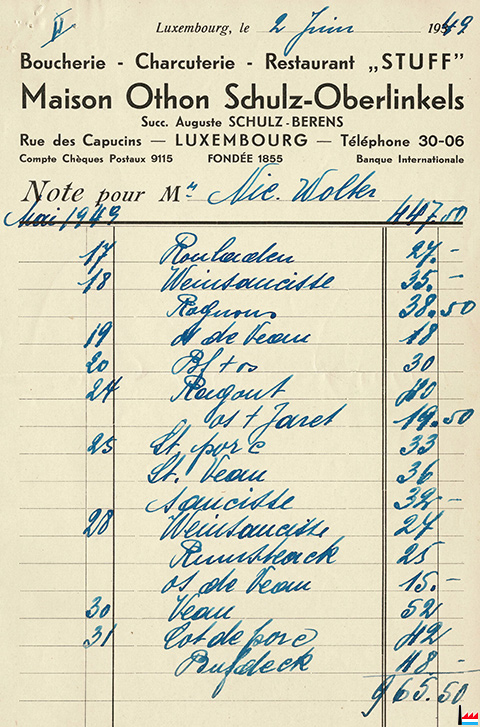 II
Luxembourg, le 2 Juin 1949
Boucherie - Charcuterie - Restaurant „STUFF”
Maison Othon Schulz-Oberlinkels
Succ. Auguste SCHULZ-BERENS
Rue des Capucins — LUXEMBOURG — Téléphone 30-06
Compte Chèques Postaux 9115 FONDÉE 1855 Banque Internationale
Note pour Mr Nic. Wolter
Mai 1949 447.50
17 Rouladen 27.-
18 Weinsaucisse 35.-
Rognons 38.50
19 de Veau 18
20 Bf + os 30
24 Ragout 40
os + Jaret 19.50
25 St. porc 33
St. Veau 36
saucisse 32.-
28 Weinsaucisse 27
Rumsteack 25
os de Veau 15.-
30 Veau 52
31 Cot de porc 42
Bufdeck 48.-
965.50